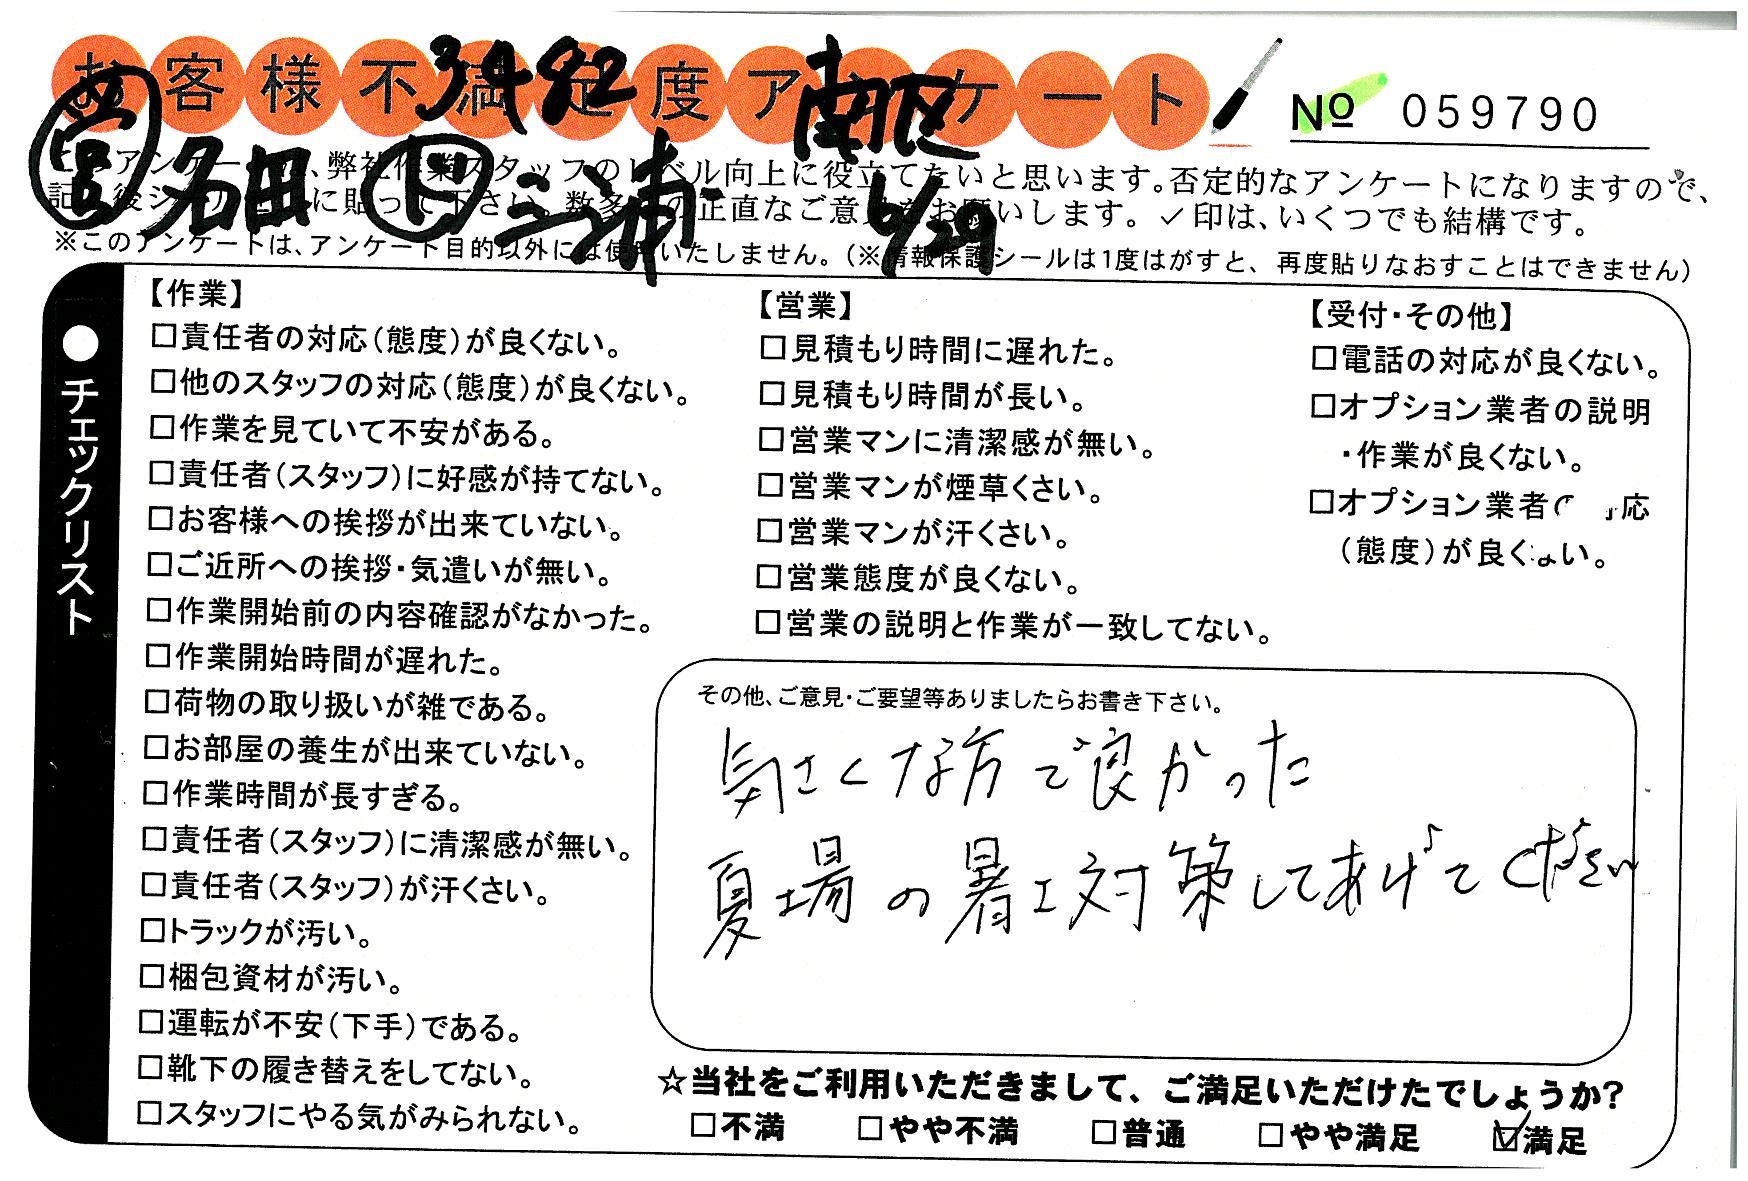 お客様不満足度アンケート
3482 南区
№ 059790
営 名田 ド 三浦 6/29
このアンケートは、弊社作業スタッフのレベル向上に役立てたいと思います。否定的なアンケートになりますので、
記入後シールを上に貼って下さい。数多くの正直なご意見をお願いします。✓印は、いくつでも結構です。
※このアンケートは、アンケート目的以外には使用いたしません。(※情報保護シールは1度はがすと、再度貼りなおすことはできません)
●チェックリスト
【作業】
□責任者の対応(態度)が良くない。
□他のスタッフの対応(態度)が良くない。
□作業を見ていて不安がある。
□責任者(スタッフ)に好感が持てない。
□お客様への挨拶が出来ていない。
□ご近所への挨拶・気遣いが無い。
□作業開始前の内容確認がなかった。
□作業開始時間が遅れた。
□荷物の取り扱いが雑である。
□お部屋の養生が出来ていない。
□作業時間が長すぎる。
□責任者(スタッフ)に清潔感が無い。
□責任者(スタッフ)が汗くさい。
□トラックが汚い。
□梱包資材が汚い。
□運転が不安(下手)である。
□靴下の履き替えをしてない。
□スタッフにやる気がみられない。
【営業】
□見積もり時間に遅れた。
□見積もり時間が長い。
□営業マンに清潔感が無い。
□営業マンが煙草くさい。
□営業マンが汗くさい。
□営業態度が良くない。
□営業の説明と作業が一致してない。
【受付・その他】
□電話の対応が良くない。
□オプション業者の説明
・作業が良くない。
□オプション業者の対応
(態度)が良くない。
その他、ご意見・ご要望等ありましたらお書き下さい。
気さくな方で良かった
夏場の暑さ対策してあげてください
☆当社をご利用いただきまして、ご満足いただけたでしょうか?
□不満 □やや不満 □普通 □やや満足 ☑満足